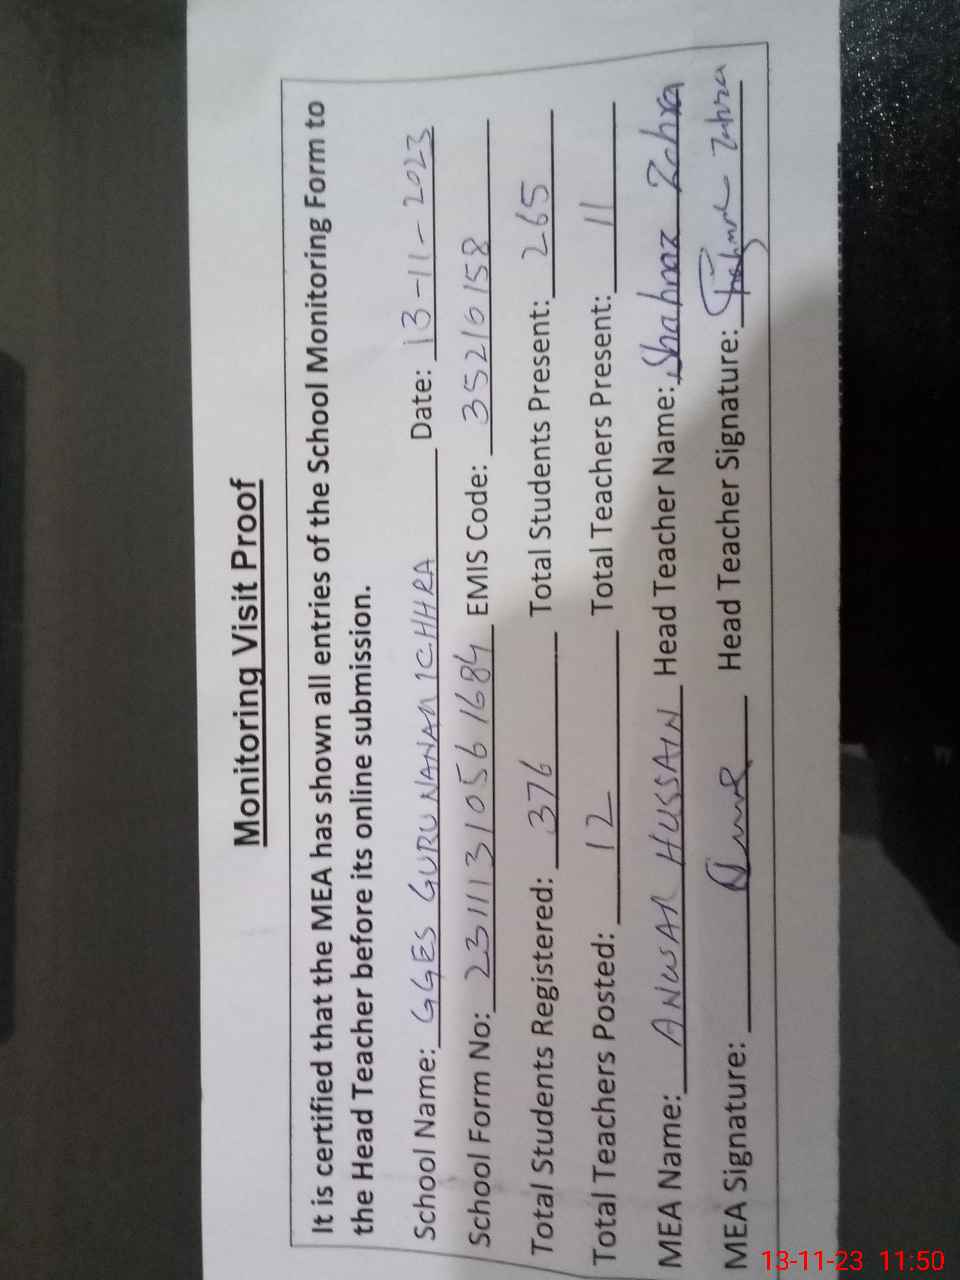 Monitoring Visit Proof
It is certified that the MEA has shown all entries of the School Monitoring Form to
the Head Teacher before its online submission.
School Name: GGES GURU NANAK ICHHRA Date: 13-11-2023
School Form No: 231113 1056 1684 EMIS Code: 35210158
Total Students Registered: 376 Total Students Present: 265
Total Teachers Posted: 12 Total Teachers Present: 11
MEA Name: ANWAR HUSSAIN Head Teacher Name: Shahnaz Zahra
MEA Signature: Head Teacher Signature: Shahnaz Zahra
13-11-23 11:50